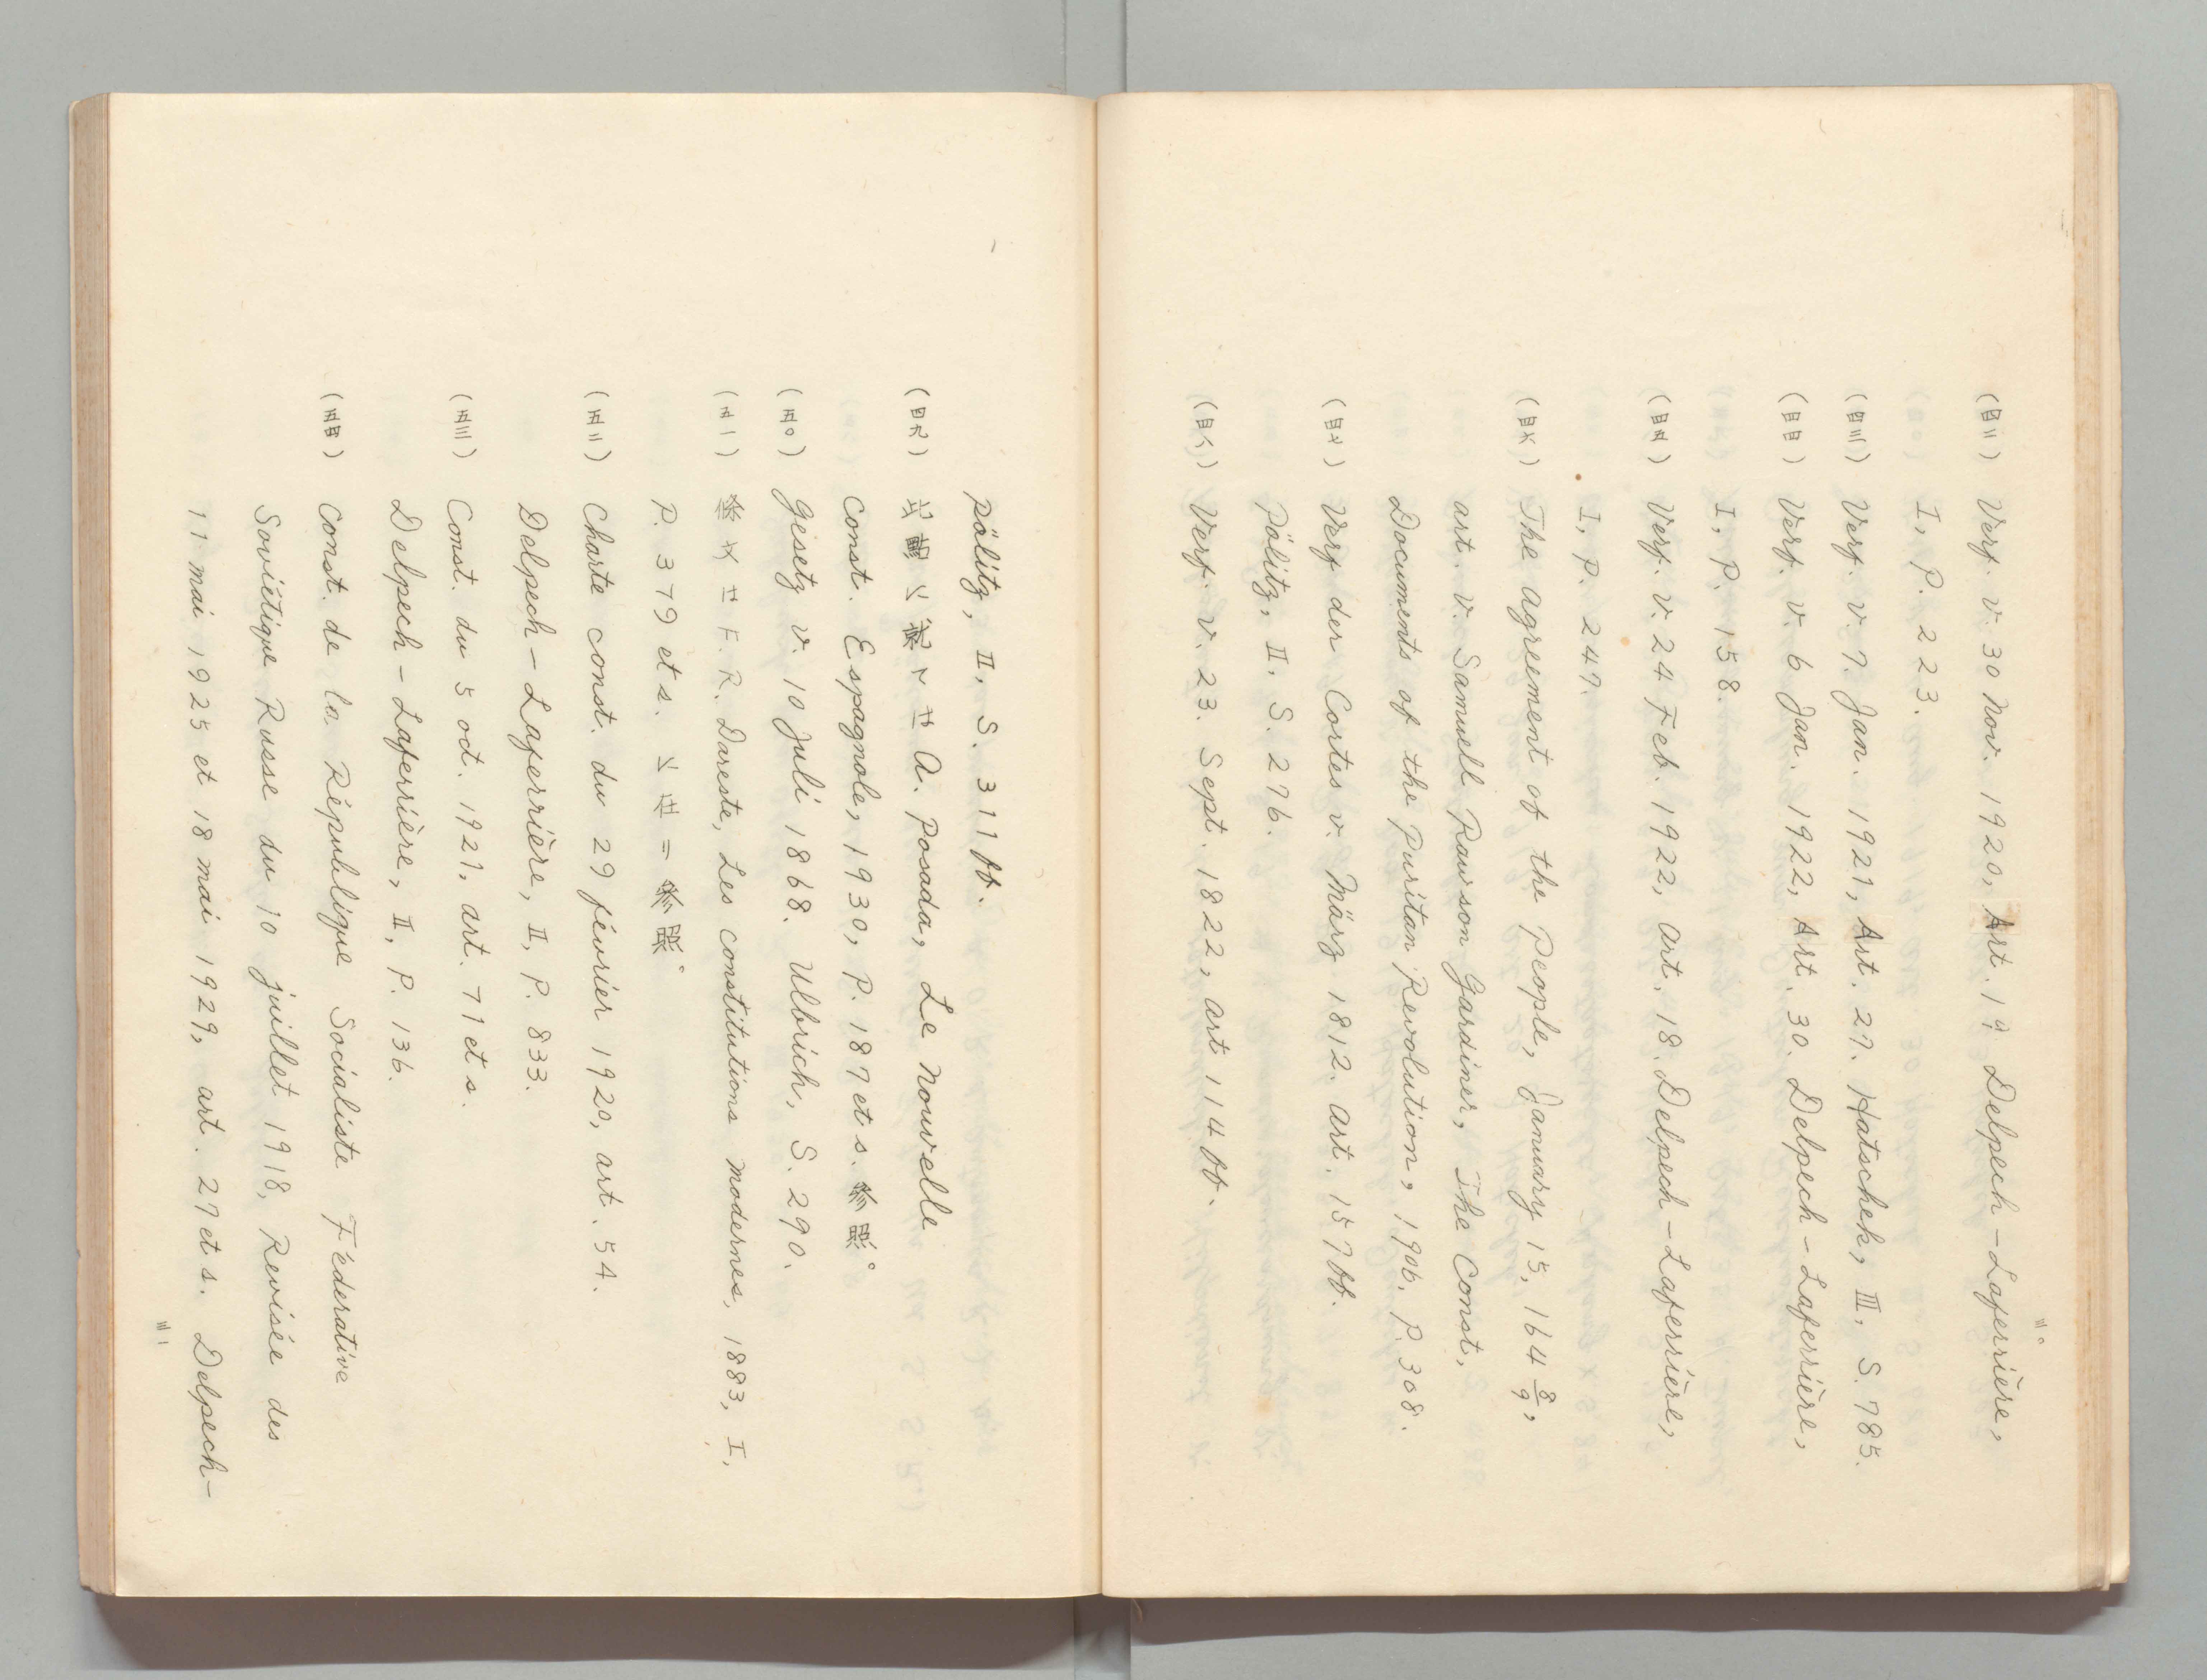 (四二) Verf. v. 30 Nov. 1920, Art. 19. Delpech-Laferrière,
I, P. 223.
(四三) Verf. v. 7. Jan. 1921, Art. 27. Hatschek, III, S. 785.
(四四) Verf. v. 6 Jan. 1922, Art. 30. Delpech-Laferrière,
I, P. 158.
(四五) Verf. v. 24 Feb. 1922, art. 18. Delpech-Laferrière,
I, P. 247.
(四六) The agreement of the People, January 15, 164 8/9,
art. V. Samuell Rawson Gardiner, The Const.
Documents of the Puritan Revolution, 1906. P. 308.
(四七) Verf der Cortes v. März 1812. art. 157ff.
Pölitz, II. S. 276.
(四八) Verf. v. 23. Sept. 1822, art 114ff.
三〇
Pölitz, II, S. 311ff.
(四九) A. Posada, Le Nouvelle
Const. Espagnole, 1930, P. 187 et s. 参照。
(五〇) Gesetz v. 10 Juli 1868. Ulbrich, S. 290.
(五一) F. R. Dareste, Les constitutions modernes, 1883, I,
P. 379 et s. 参照。
(五二) Charte const. du 29 février 1920, art. 54.
Delpech-Laferrière, II, P. 833.
(五三) Const. du 5 oct. 1921, art. 71 et s.
Delpech-Laferrière, II, P. 136.
(五四) Const. de la République Socialiste Féderative
Soviétique Russe du 10 juillet 1918, Revisée des
11 mai 1925 et 18 mai 1929, art. 27 et s. Delpech-
三一